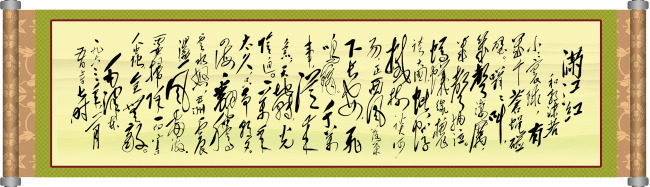 满江红
和郭沫若
小小寰球,有
几个苍蝇碰
壁。嗡嗡叫,
几声凄厉
几声抽泣
蚂蚁缘槐
夸大国,蚍蜉
撼树谈何
易。正西风落叶
下长安,飞
鸣镝。多少
事,从来
急。天地转,光
阴迫。一万年
太久,只争朝夕。
四海翻腾
云水怒,五洲震
荡风雷激。
要扫除一切害
人虫,全无敌。
毛泽东
一九六三年一月